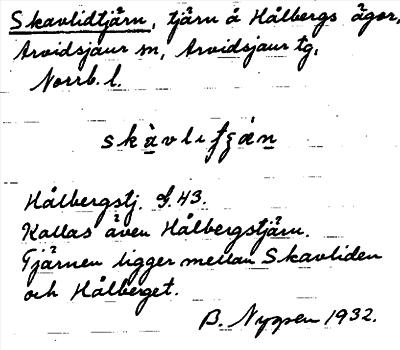 Skavlidtjärn, tjärn å Hålbergs ägor,
Arvidsjaur sn, Arvidsjaur tg,
Norrb. l.
Hålbergstj. G. 43.
Kallas även Hålbergstjärn.
Tjärnen ligger mellan Skavliden
och Hålberget.
B. Nygren 1932.